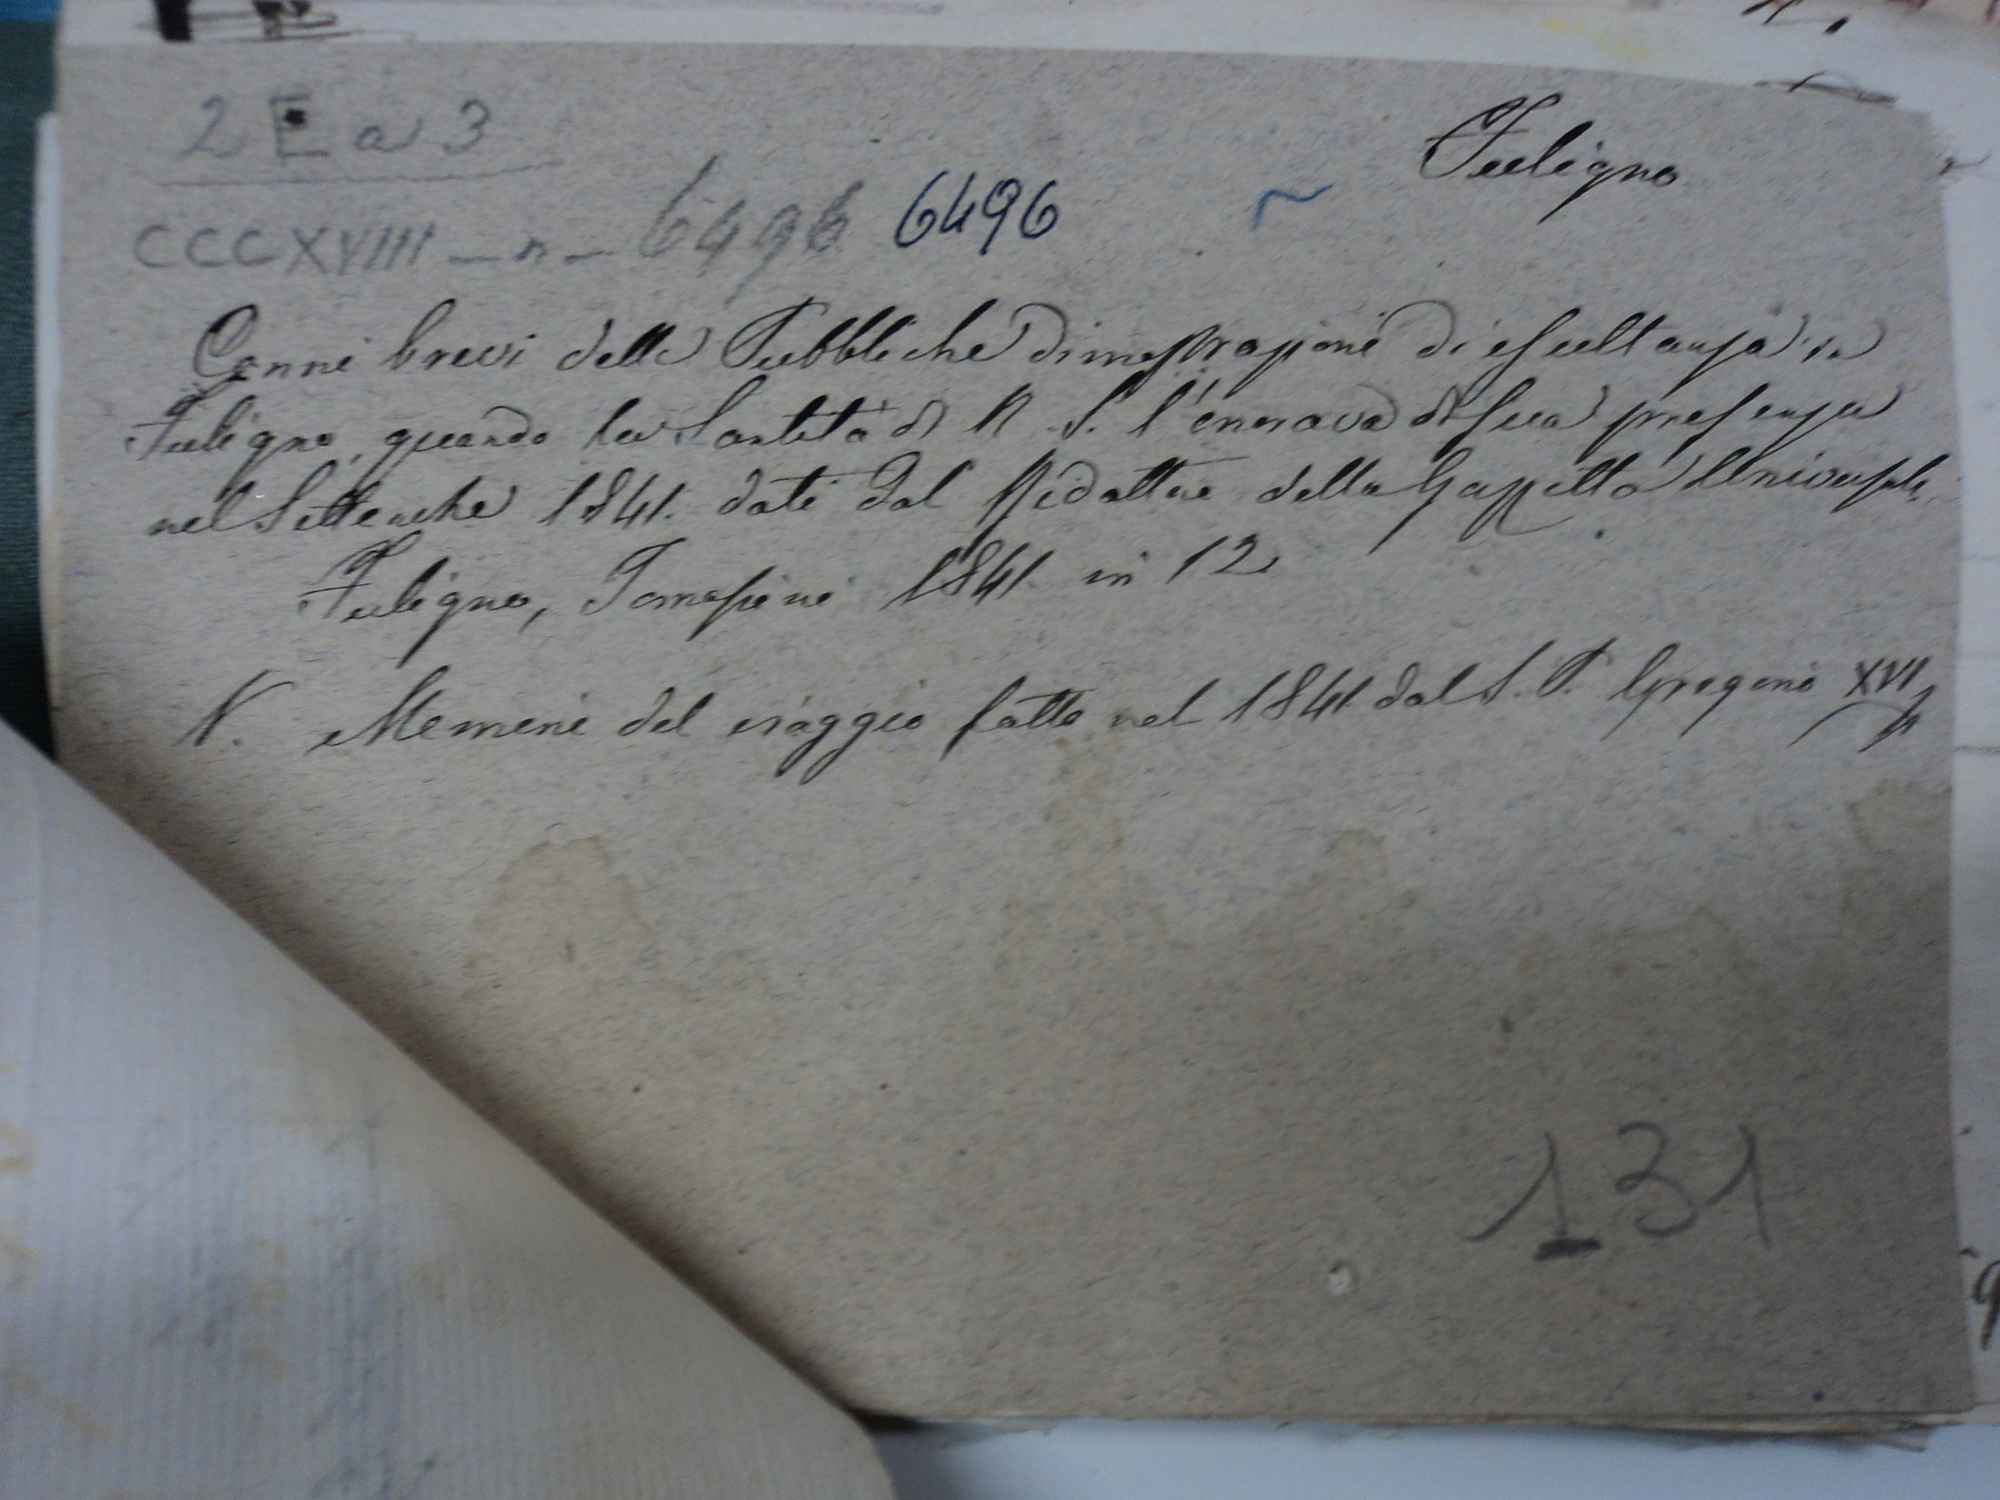 2 E a 3
Fuligno
CCCXVIII - n - 6496 6496 ~
Cenni brevi delle Pubbliche dimostrazioni di esultanza in
Fuligno, quando la Santità di N. S. l'onorava di sua presenza
nel Settembre 1841. dati dal Redattore della Gazzetta Universale.
Fuligno, Tomassini 1841. in 12
V. Memorie del viaggio fatto nel 1841 dal S. P. Gregorio XVI
131